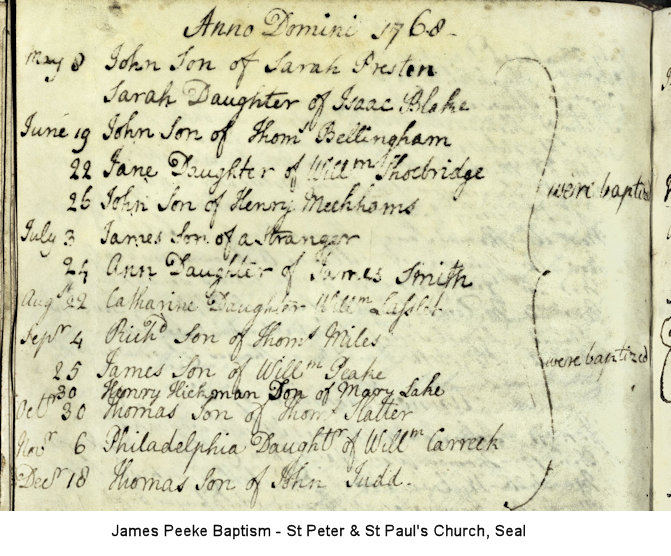 Anno Domini 1768-
May 8 John Son of Sarah Presten
Sarah Daughter of Isaac Blake
June 19 John Son of Thoms Bellingham
22 Jane Daughter of Willm Thoebridge
26 John Son of Henry Mechhoms
were baptiz
July 3 James Son of a Stranger
24 Ann Daughter of James Smith
Augst 22 Catharine Daughter Willm Lasslet
Sepr 4 Richd Son of Thoms Miles
were baptized
25 James Son of Willm Peake
30 Henry Hickman Son of Mary Lake
Octr 30 Thomas Son of Thoms Slatter
Novr 6 Philadelphia Daughtr of Willm Carreck
Decr 18 Thomas Son of John Judd.
James Peeke Baptism - St Peter & St Paul's Church, Seal